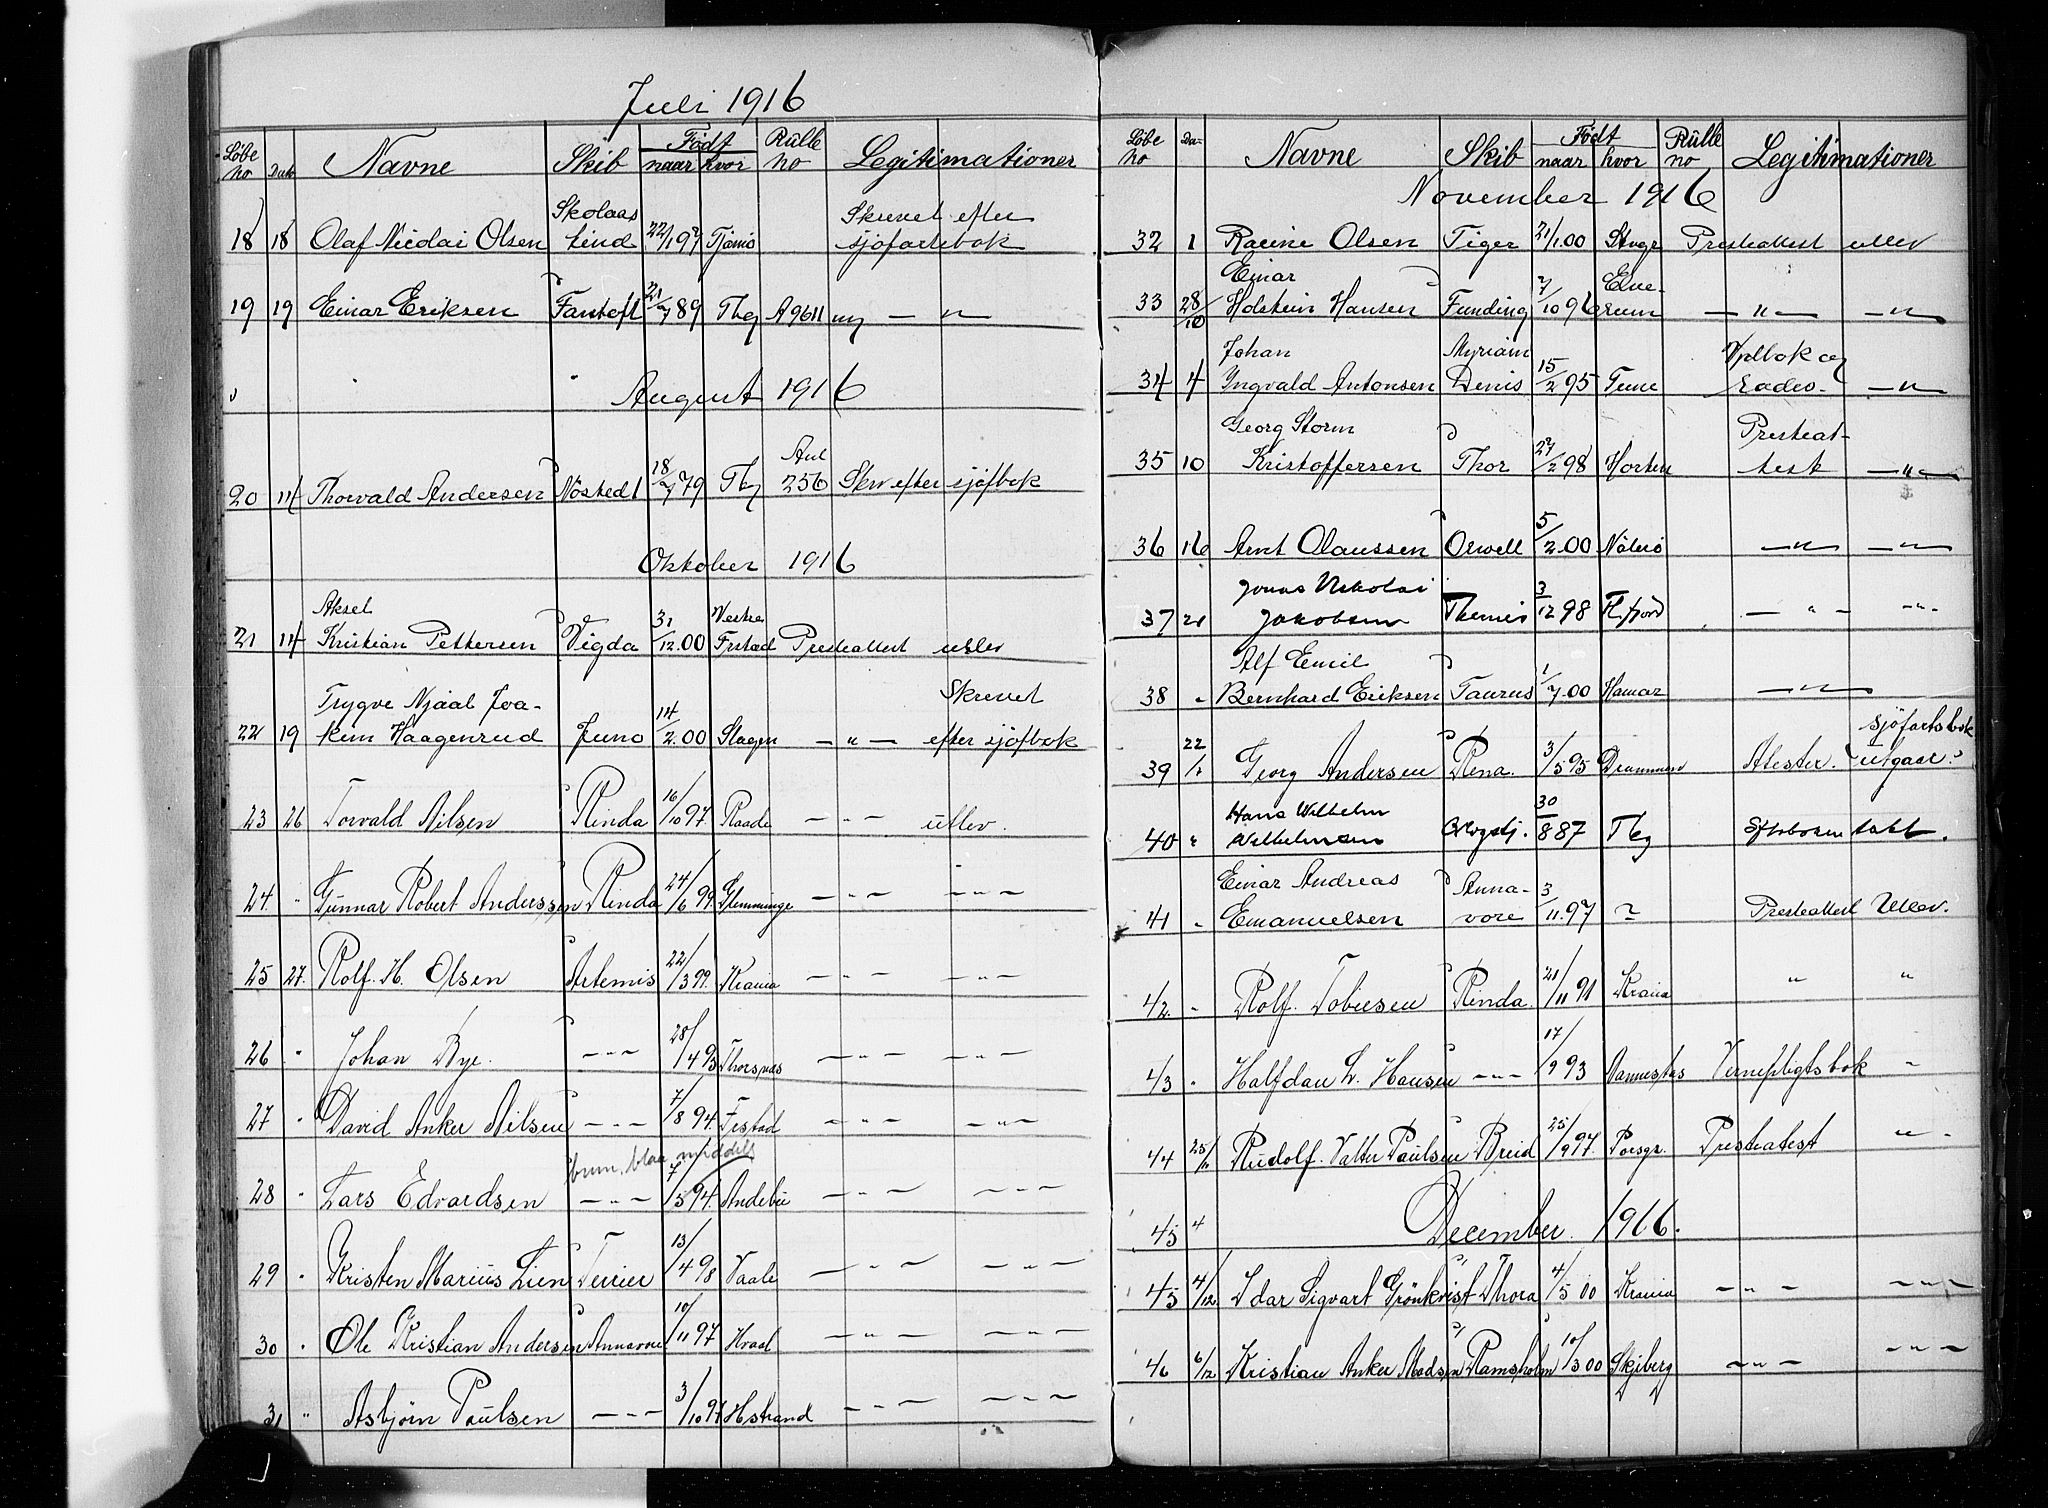 Juli 1916
Løbe no Dato Navne Skib Født naar hvor Rülle no Legitimationer
18 18 Olaf Nicolai Olsen Skolaas tind 22/1 97 Tjømø Skrevet efter sjøfartsbok
19 19 Einar Eriksen Fantoft 21/7 89 Tbg A9611 ny — " —
August 1916
20 14 Thorvald Andersen Nøstedt 18/7 79 Tbg Aul 256 Skrv efter sjøfbok
Oktober 1916
21 14 Aksel Kristian Pettersen Vigda 31/12 00 Vestre Frstad Presteattest utlev
22 19 Trygve Njaal Joa-
kim Haagenrud Juno 14/2 00 Slagen — " — Skrevet efter sjøfbok
23 26 Torvald Nilsen Rinda 16/10 97 Raade — " — utlev.
24. " Gunnar Robert Anderssen Rinda 24/6 99. Glemminge — " — — " —
25 27. Rolf. H. Olsen Artemis 22/3 99. Krania — " — — " —
26 " Johan Bye. — " — 28/4 95 Thorsnæs — " — — " —
27 " David Anker Nilsen — " — 7/8 94. Frstad — " — — " —
brun, blaa middels
28 " Lars Edvardsen — " — 7/5 94. Andebu — " — — " —
29 " Kristen Marius Lien Terrier 13/4 98 Vaale — " — — " —
30 " Ole Kristian Andersen Annavore 10/11 97 Hvaal — " — — " —
31 " Asbjørn Paulsen — " — 3/10 97 Hstrand — " — — " —
Løbe no Da- Navne Skib Født naar hvor Rülle no Legitimationer
November 1916
32 1 Racine Olsen Tiger 21/1 00 Stvgr Presteattest utlev
33 28/10 Einar Holstein Hansen Funding 7/10 96 Elve-
rum — " — — " —
34 4 Johan Ingvald Antonsen Myriam Denis 15/2 95 Tune Vplbok og — " —
35 10 Georg Storm Kristoffersen Thor 27/2 98 Horten Presteat-
test — " —
36 16 Arnt Olaussen Orwell 5/2 00 Nøterø — " — — " —
37 21 Jonas Nikolai Jakobsen Themis 3/12 98 H.fjord — " — — " —
38 " Alf Emil Bernhard Eriksen Taurus 1/7 00 Hamar — " —
39 22/11 Georg Andersen Rena. 3/5 95 Drammen Atester. sjøfartsbok utgaar.
40 " Hans Wilhelm Wilhelmsen 30/8 87 Tbg
41 " Einar Andreas Emanuelsen Anna-
vore 3/11 97 ? Presteattest Utlev.
42. " Rolf Tobiesen Rinda. 21/11 91 Krania " "
43 " Halfdan L. Hansen — " — 17/9 93 Vernepligtsbok "
44 25/11 Rudolf. Valter Paulsen Breid 25/9 97. Porsgr. Presteatest "
45 4 December. 1916.
45 4/12 Idar Sigvart Grönkvist Thora 4/5 00 Krania — " — — " —
46 6/12 Kristian Anker Madsen Ramsholm 10/3 00 Skjeberg — " — — " —